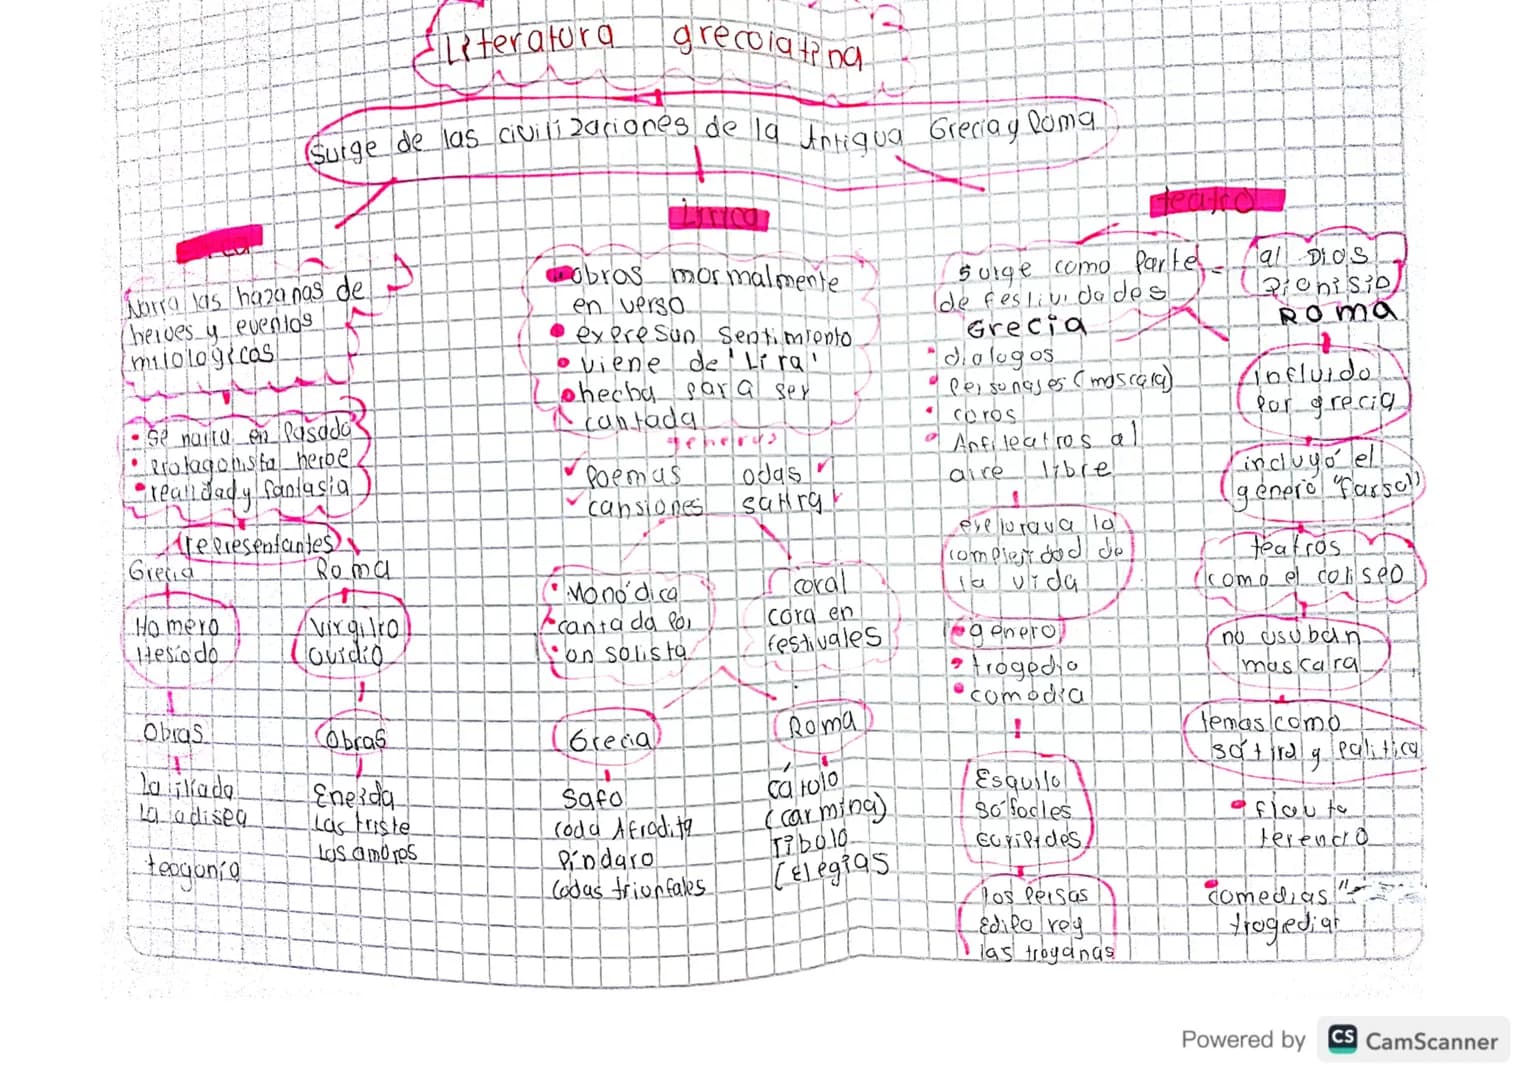 Literatura grecolatina
Surge de las civilizaciones de la Antigua Grecia y Roma
Narra las hazanas de
heroes y eventos
miologicas
• se narra en Pasado
• Protagonista heroe
• realidad y fantasia
representantes
Grecia
Homero
Hesiodo
Obras
la iliada
La odisea
teogonía
Roma
Virgilio
Ovidio
Obras
Eneida
Las triste
Los amores
Lirica
obras mormalmente
en verso
• expresan Sentimiento
• viene de 'Lira'
• hecha para ser
cantada
generos
✓ Poemas odas ✓
✓ cansiones satira ✓
• Monódica
cantada por
un solista
coral
cora en
festivales
Grecia
Safo
(oda Afrodita
Píndaro
(odas trionfales
Roma
cátulo
(carmina)
Tibolo
(Elegias
teatro
Surge como Parte
de festividades
al Dios
Dionisio
Grecia
• dialogos
• Personajes (mascara)
• coros
• Anfiteatros al
aire libre
complejidad de
la vida
• genero
• tragedia
• comodia
Esquilo
Sófocles
Euripides
los Persas
Edipo rey
las troyanas
Roma
Influido
Por grecia
incluyó el
genero "farsa"
teatros
como el coliseo
no usuban
mascara
temas como
sátira y politica
•
terencio
• comedias "
tragedias
Powered by CS CamScanner